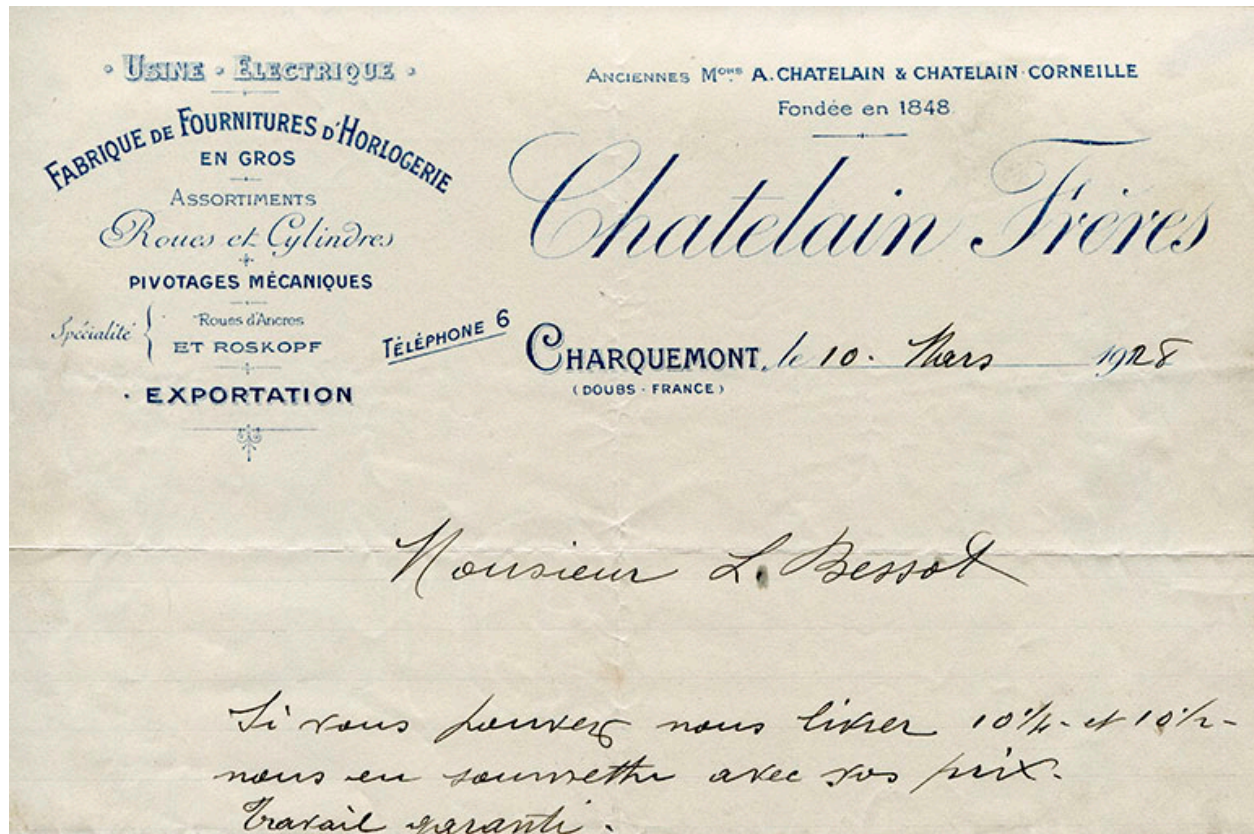 · USINE · ELECTRIQUE ·
FABRIQUE DE FOURNITURES D'HORLOGERIE
EN GROS
ASSORTIMENTS
Roues et Cylindres
PIVOTAGES MÉCANIQUES
Spécialité { Roues d'Ancres
ET ROSKOPF
· EXPORTATION
ANCIENNES MONS A. CHATELAIN & CHATELAIN-CORNEILLE
Fondée en 1848
Chatelain Frères
TÉLÉPHONE 6
CHARQUEMONT, le 10. Mars 1928
(DOUBS - FRANCE)
Monsieur L. Bessot
Si vous pouvez nous livrer 10 1/4 - et 10 1/2 -
nous en soumettre avec vos prix.
Travail garanti.